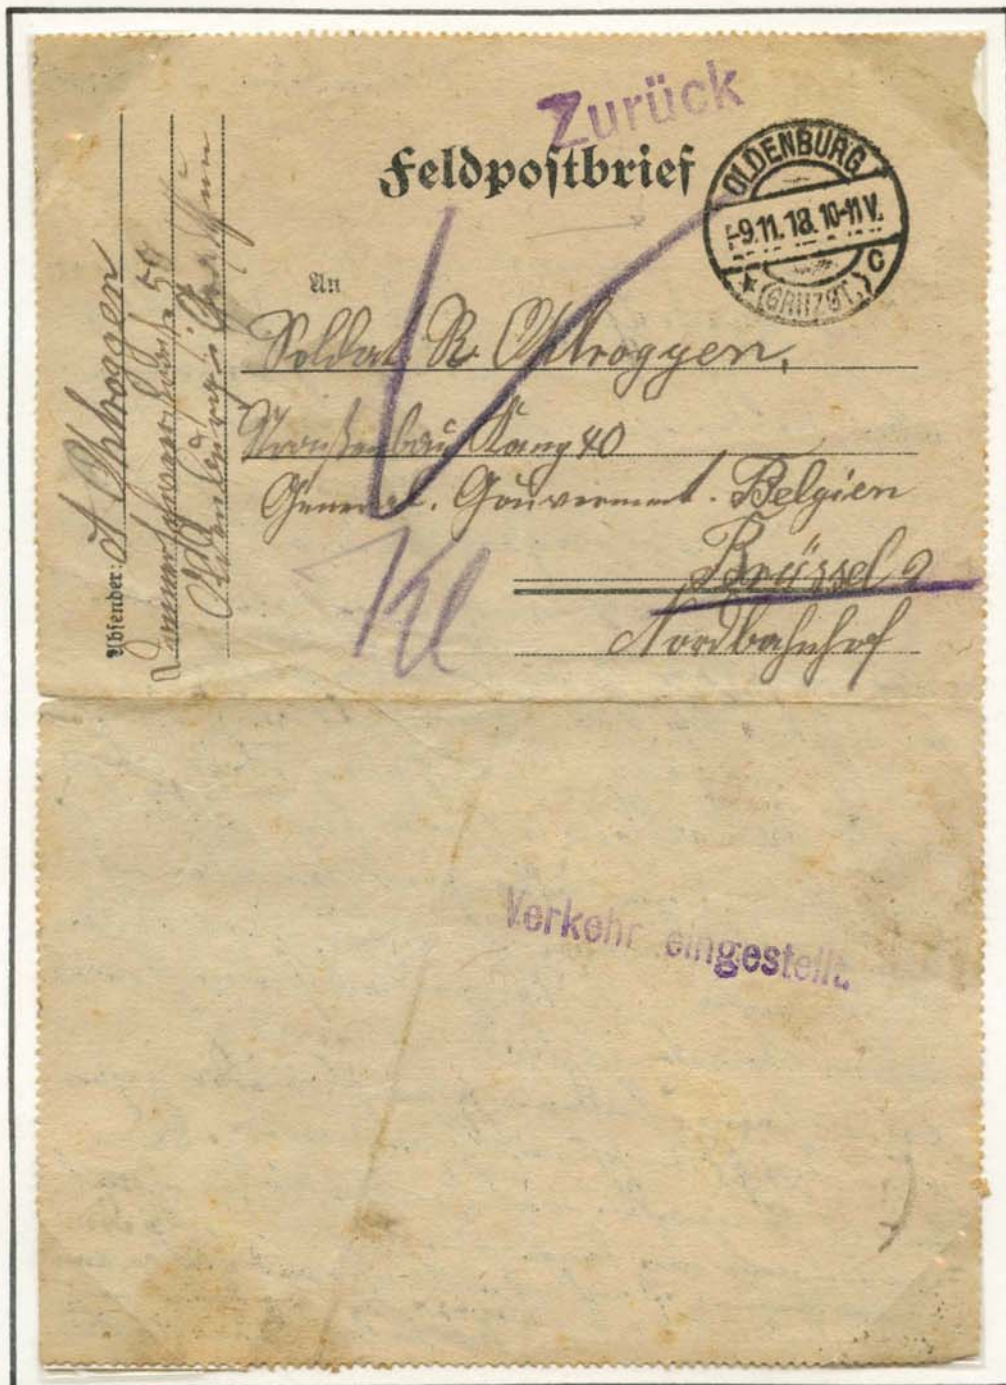 Zurück
Feldpostbrief
OLDENBURG
-9.11.18.10-11V.
(GRHZGT.) C
An
Soldat R. Ostroggen,
Straßenbau Komp 40
General. Gouverment. Belgien
Brüssel 2
Nordbahnhof
Kl
Absender: A Ostroggen
54
Oldenburg i Großhzm
Verkehr eingestellt.